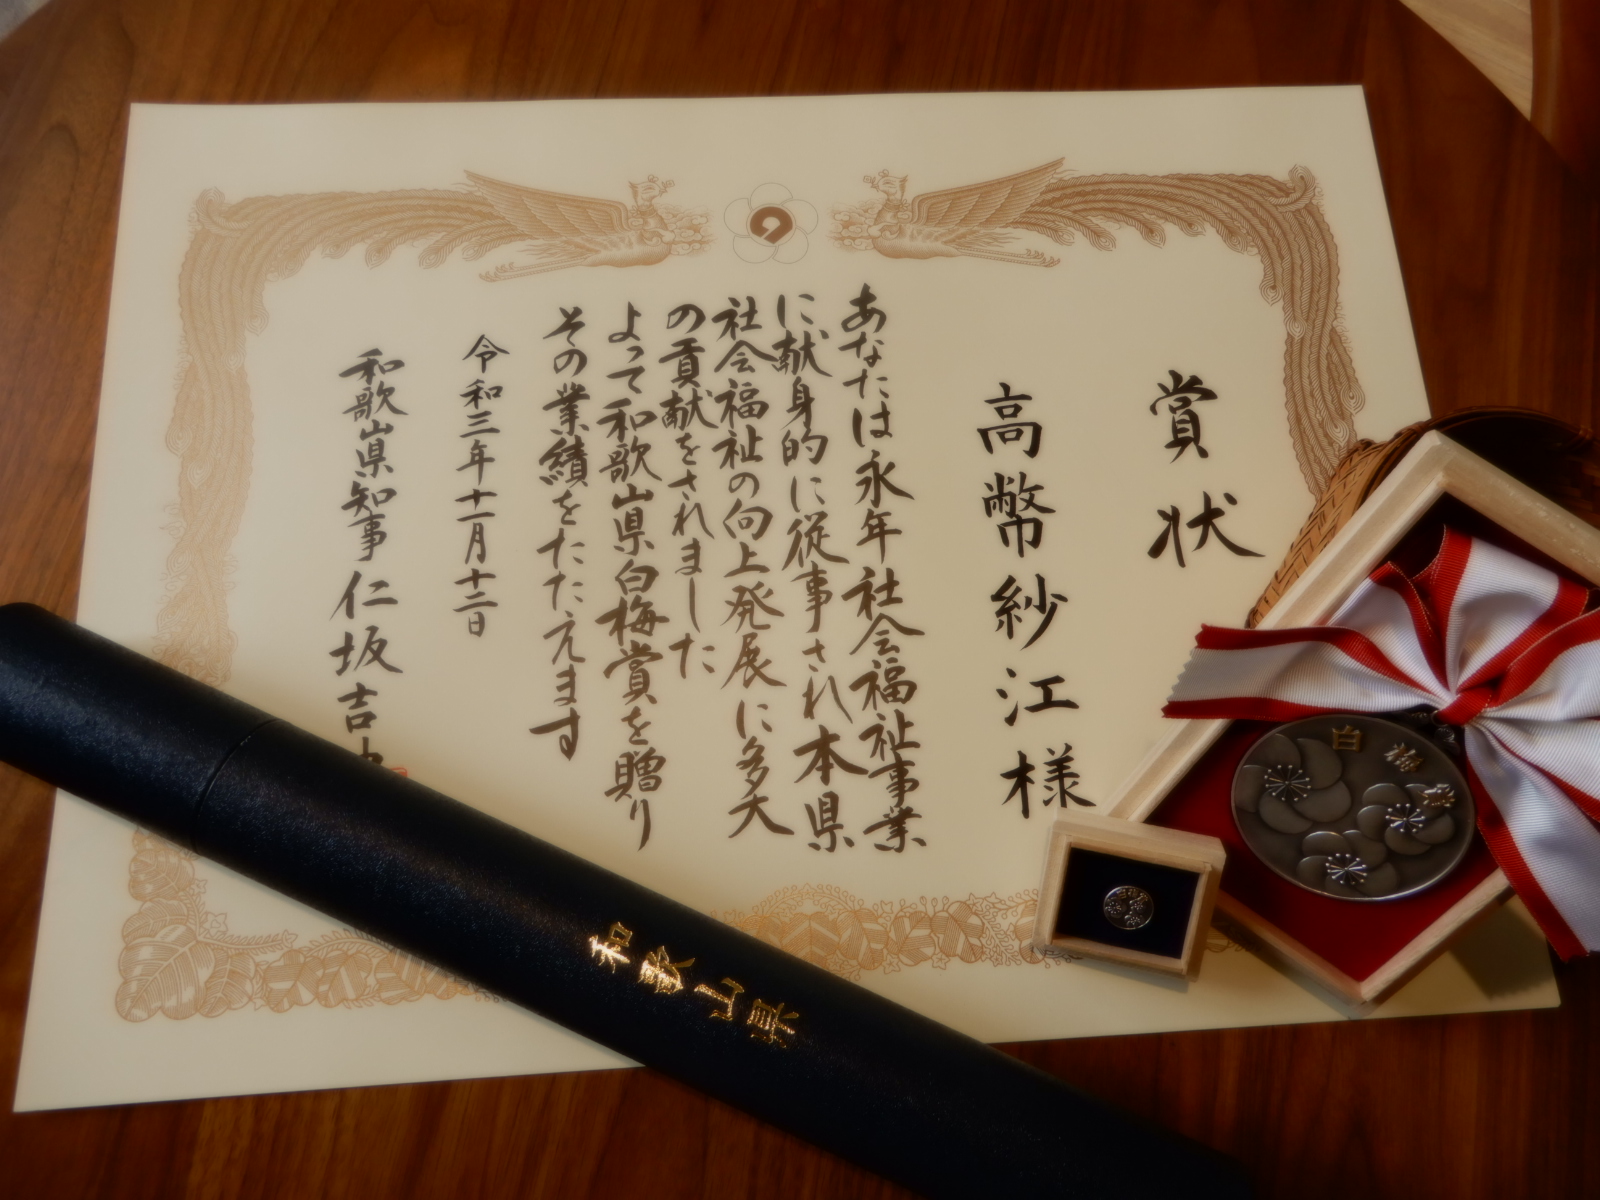 賞状
高幣紗江様
あなたは永年社会福祉事業
に献身的に従事され本県
社会福祉の向上発展に多大
の貢献をされました
よって和歌山県白梅賞を贈り
その業績をたたえます
令和三年十一月十二日
和歌山県知事 仁坂吉
和歌山県
白梅賞